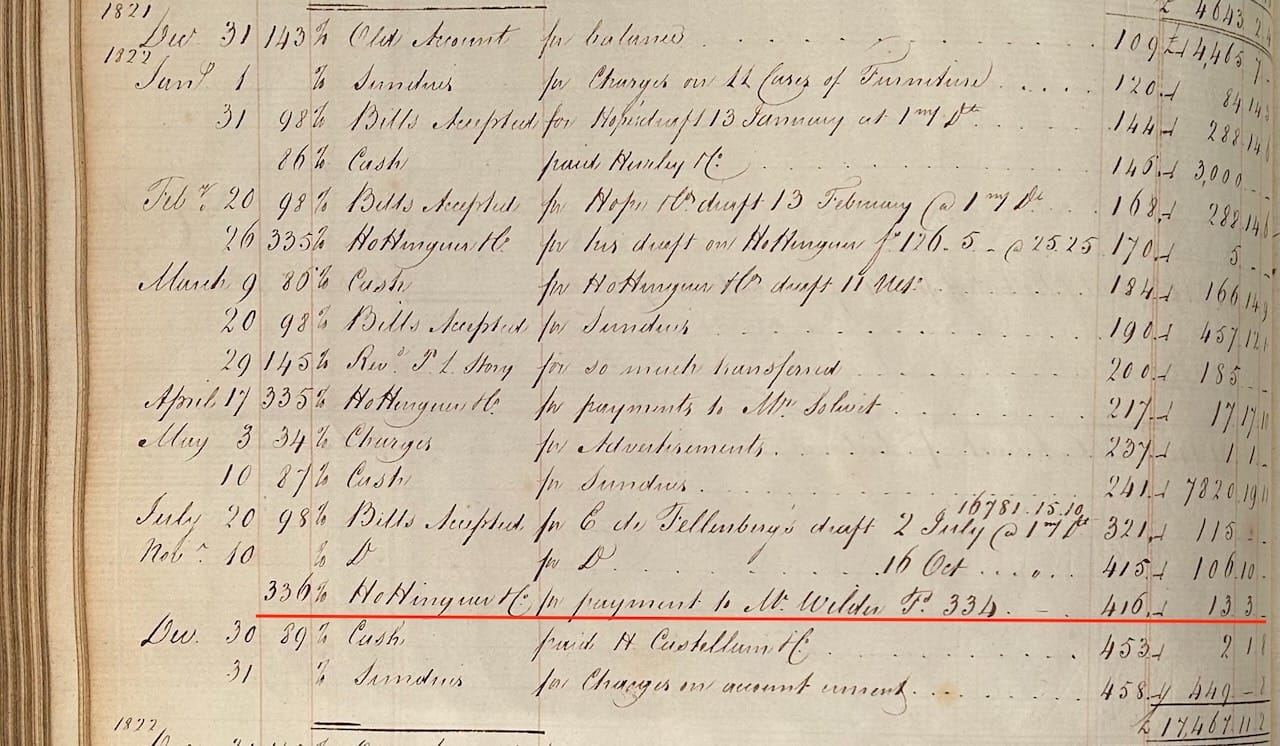 1821 £ 4643 2
Dec 31 143 % Old Account for balance 109 £ 4,465 7 -
1822
Jany 1 % Sundries for Charges on 11 Cases of Furniture 120 84 14 3
31 98 % Bills Accepted for Hope's draft 13 January at 1 m/ Dt 144 288 14 6
86 % Cash paid Hurley &Co 146 3,000 - -
Feby 20 98 % Bills Accepted for Hope &Co draft 13 February @ 1 m/ Dt 168 288 14 6
26 335 % Hottinguer &Co for his draft on Hottinguer fs 126.5 - @ 25.25 170 5 - -
March 9 86 % Cash for Hottinguer &Co draft 11 Ult: 184 166 14 9
20 98 % Bills Accepted for Sundries 190 457 12 1
29 145 % Revd P. L. Story for so much transferred 200 185
April 17 335 % Hottinguer &Co for payments to Mr 217 17 17 10
May 3 34 % Charges for Advertisements 237 1 1 -
10 87 % Cash for Sundries 241 7820 19 11
16781.15.10
July 20 98 % Bills Accepted for E de Fellenberg's draft 2 July @ 1 m/ Dt 321 115 -
Novr 10 % Do for Do 16 Oct " 415 106 10 -
336 % Hottinguer &Co for payment to Mr Wilder Fs 334 - 416 13 3 -
Dec. 30 89 % Cash paid H Castellain &Co 453 2 1 8
31 % Sundries for Charges on account current 458 449 - 2
£ 17,467 11 2
1822